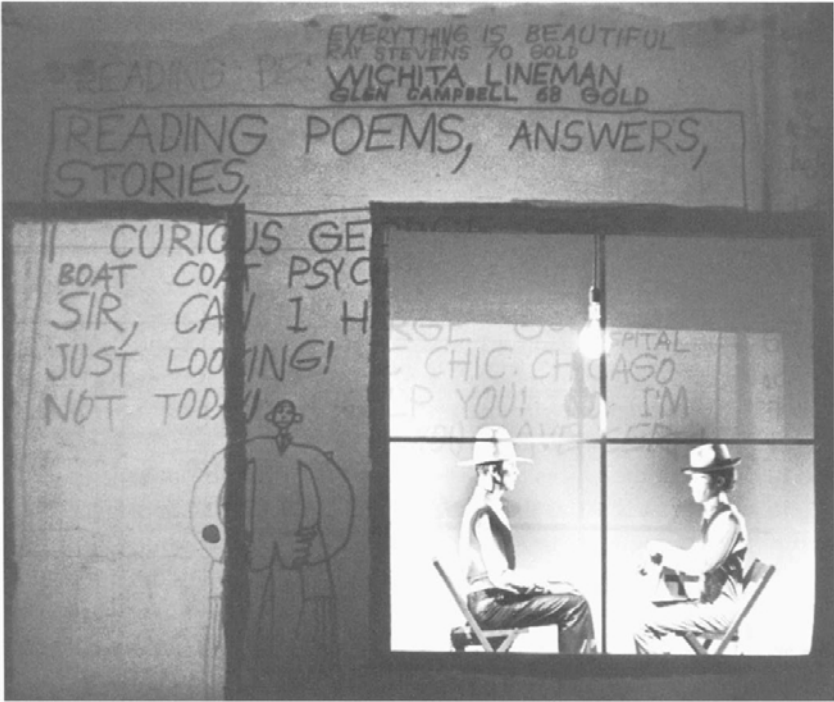 EVERYTHING IS BEAUTIFUL
RAY STEVENS 70 GOLD
READING
WICHITA LINEMAN
GLEN CAMPBELL 68 GOLD
READING POEMS, ANSWERS,
STORIES,
CURIOUS GE
BOAT COAT PSYC
SIR, CAN I H
JUST LOOKING!
NOT TODAY!
RGE SPITAL
C CHIC. CHICAGO
LP YOU! I'M